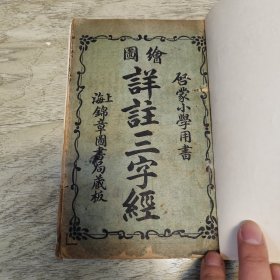 繪圖
啓蒙小學用書
詳註三字經
上海錦章圖書局藏板